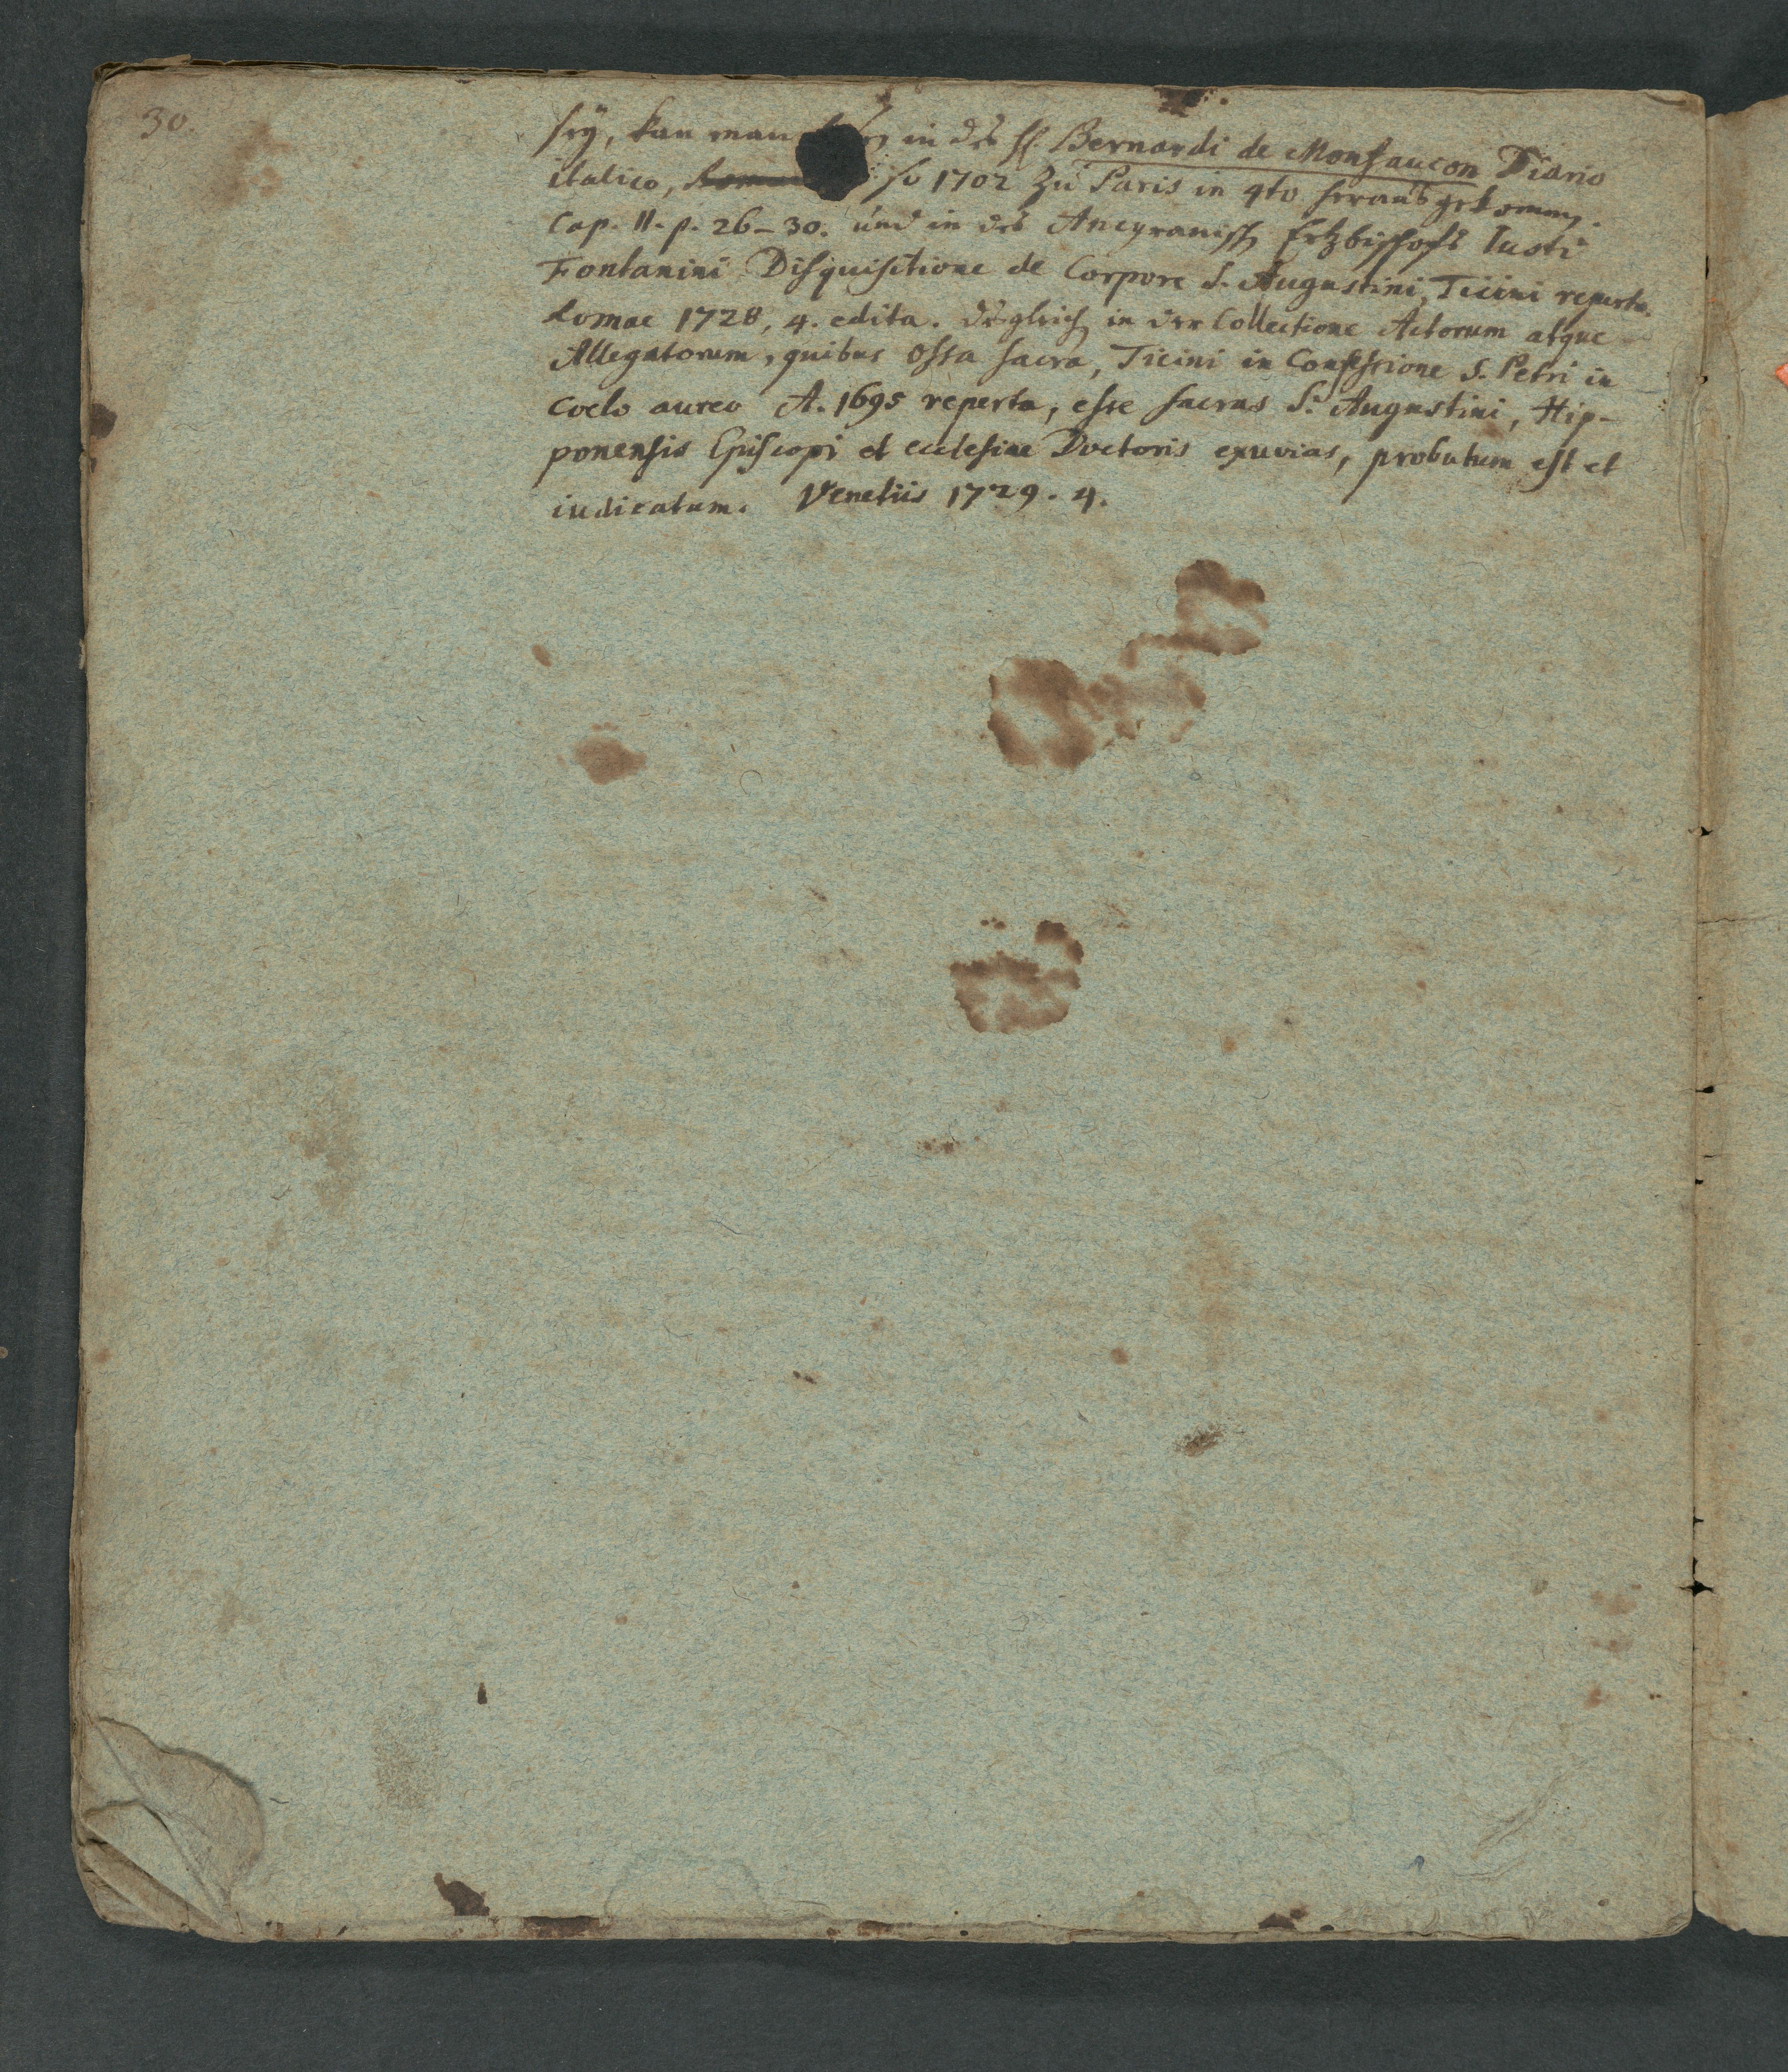 30.
sey, kan man in des H. Bernardi de Monfaucon Diario
italico, so 1702 zu Paris in 4to herausgekommen.
Cap. II. p. 26-30. und in des Ancyranisch Ertzbischofs Iusti
Fontanini Disquisitione de Corpore S. Augustini, Ticini reperto.
Romae 1728, 4. edita. desgleich in der Collectione Actorum atque
Allegatorum, quibus ossa sacra, Ticini in Confessione S. Petri in
Coelo aureo A. 1695 reperta, esse sacras S. Augustini, Hip-
ponensis Episcopi et ecclesiae Doctoris exuvias, probatum est et
iudicatum. Venetiis 1729. 4.